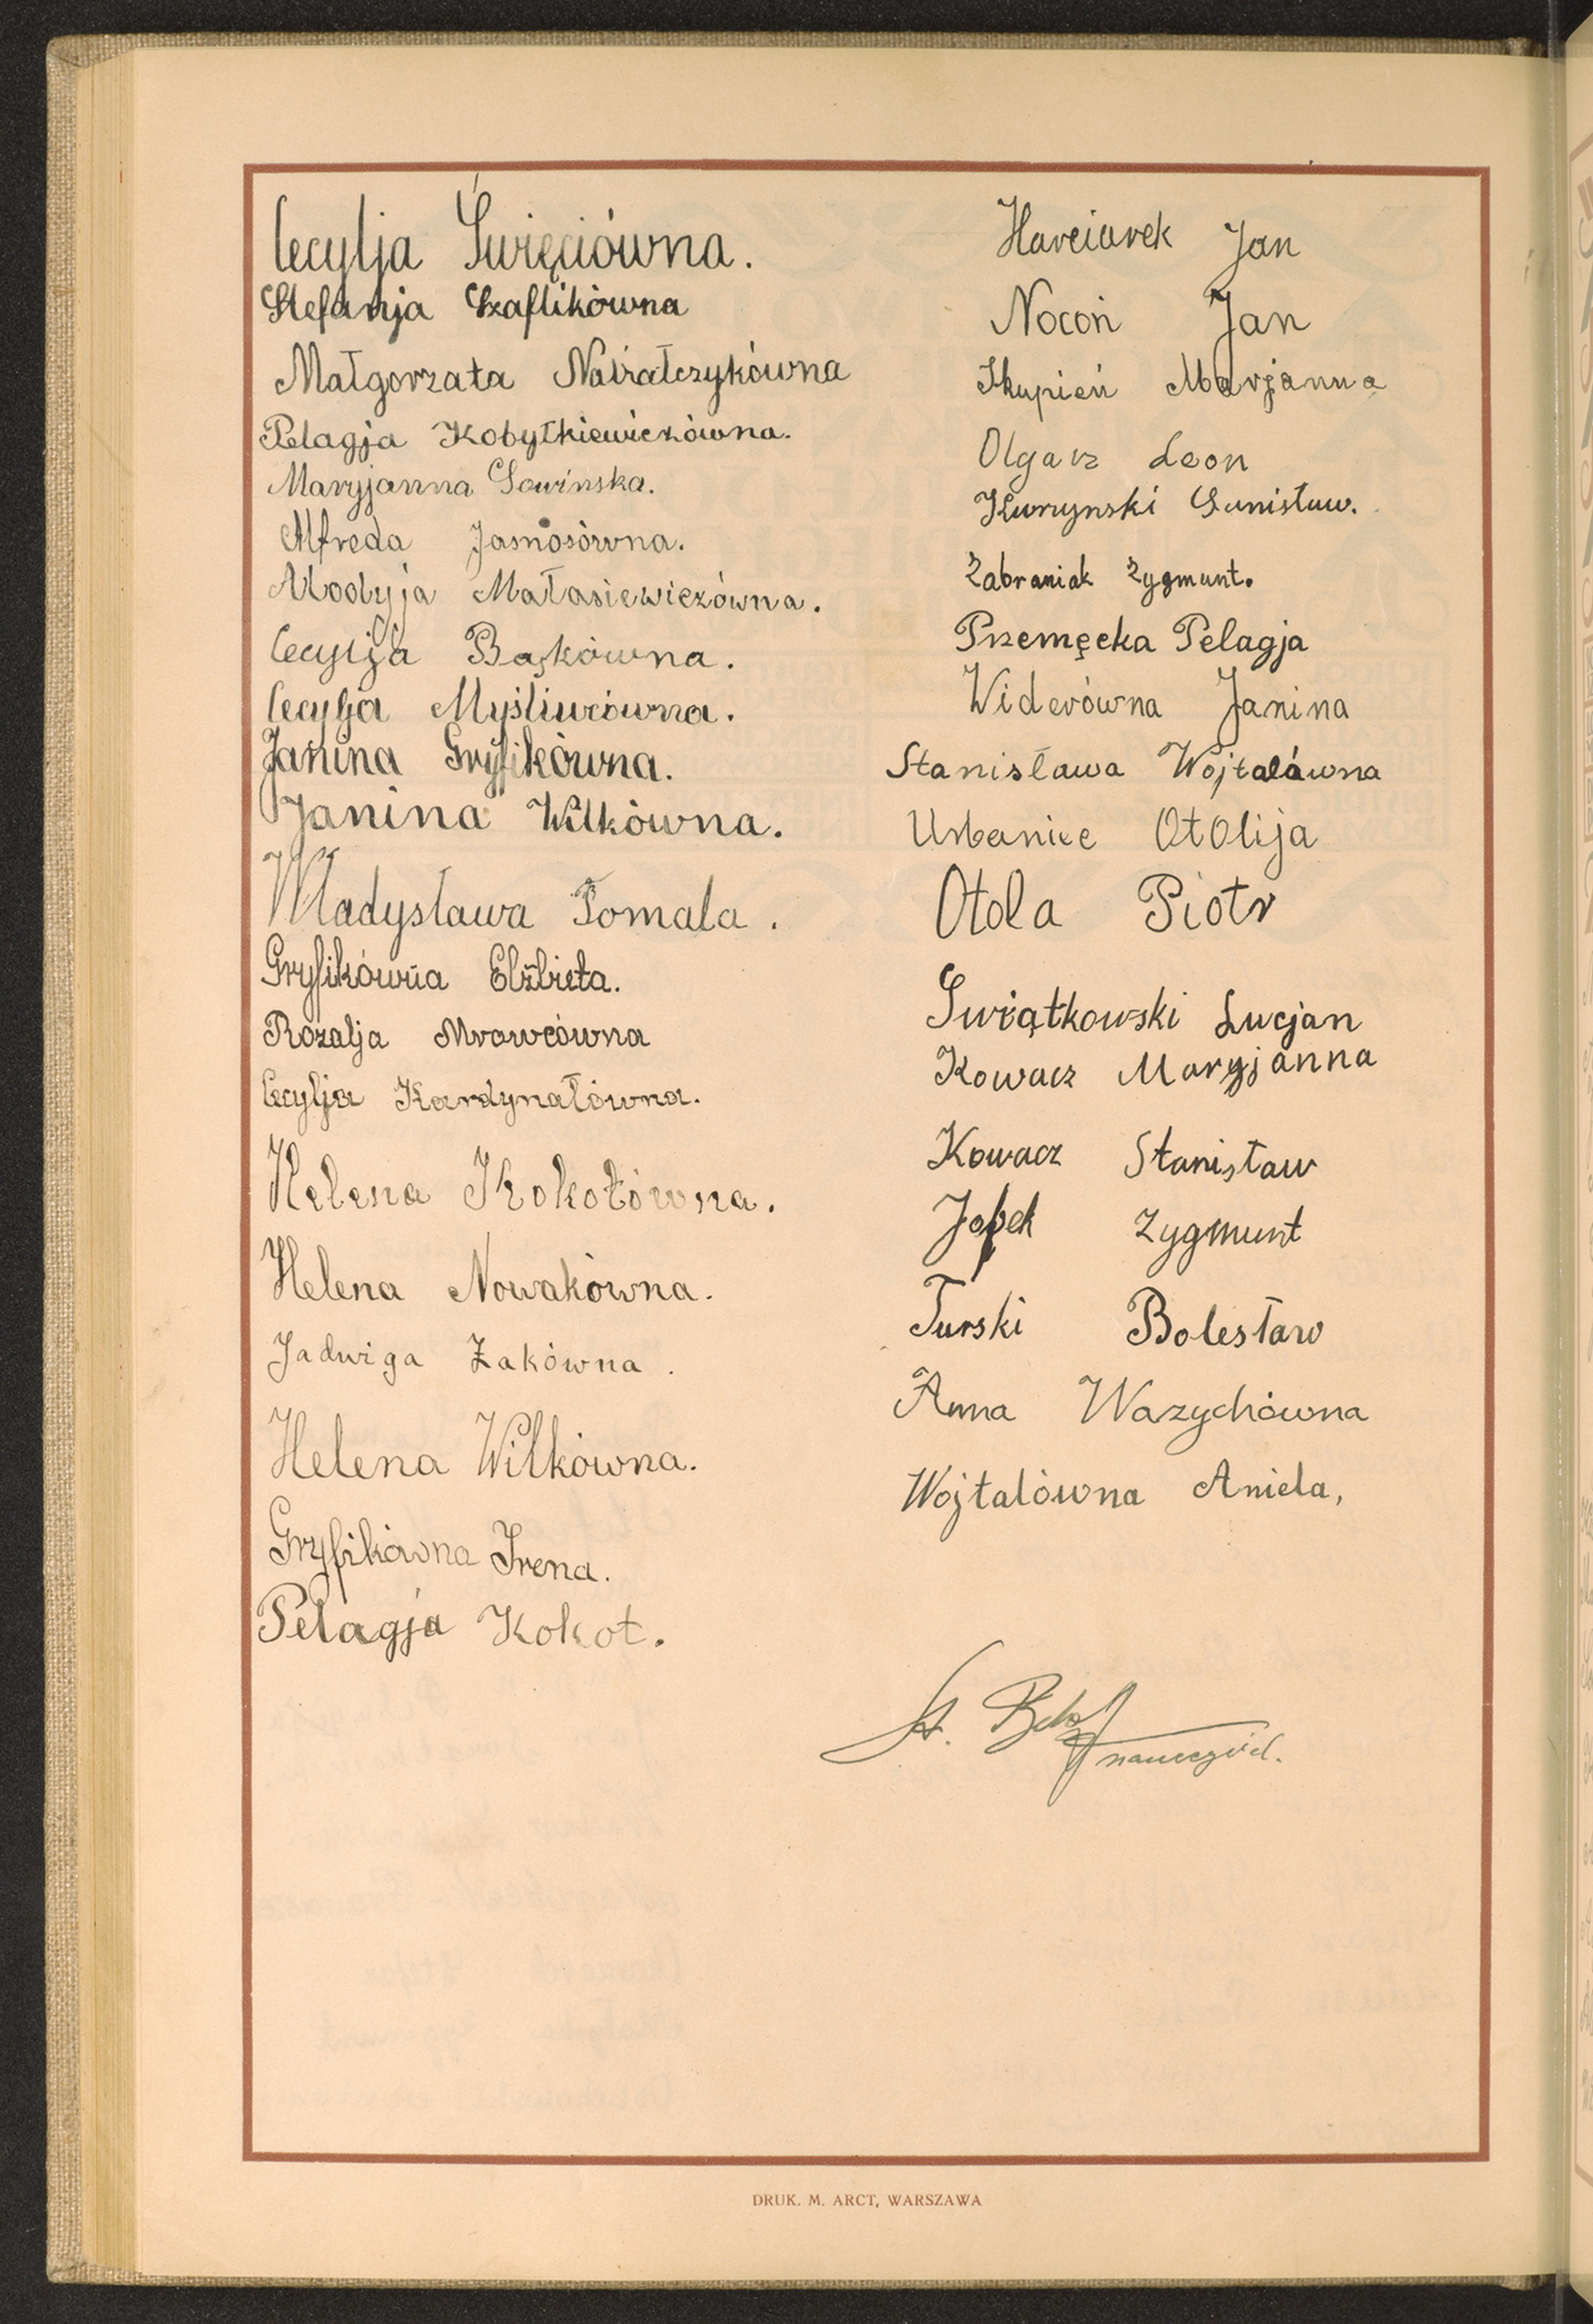 Cecylja Święciówna.
Stefanja Szaflikówna
Małgorzata Nabiałczykówna
Pelagja Kobyłkiewiczówna.
Maryjanna Sowińska.
Alfreda Jasnosówna.
Małasiewiczówna.
Cecylja Bąkówna.
Cecylja Myśliwcówna.
Janina Gryfikówna.
Janina Wilkówna.
Władysława Tomala.
Gryfikówna Elżbieta.
Rozalja Mrowcówna
Cecylja Kardynałówna.
Helena Kokotówna.
Helena Nowakówna.
Jadwiga Żakówna.
Helena Wilkówna.
Gryfikówna Irena.
Pelagja Kokot.
Harciarek Jan
Nocoń Jan
Skupień Marjanna
Olgacz Leon
Zabraniak Zygmunt.
Przemęcka Pelagja
Widerówna Janina
Stanisława Wojtalówna
Urbaniec Otolija
Otola Piotr
Świątkowski Lucjan
Kowacz Maryjanna
Kowacz Stanisław
Zygmunt
Turski Bolesław
Anna Wazychówna
Wojtalówna Aniela,
St.
nauczyciel.
DRUK. M. ARCT, WARSZAWA